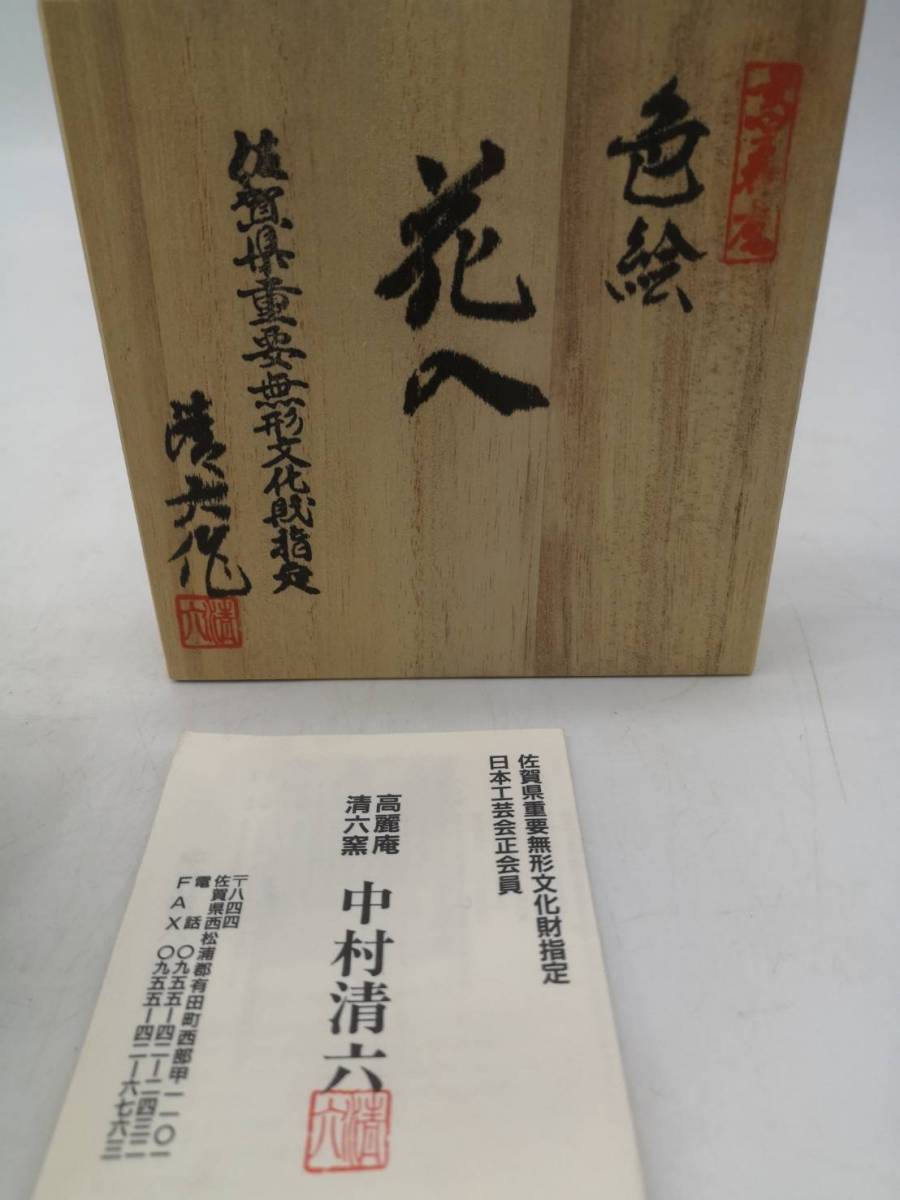 高麗庵
色絵
花入
佐賀県重要無形文化財指定
清六作
清六
佐賀県重要無形文化財指定
日本工芸会正会員
高麗庵
清六窯
中村清六
清六
〒八四四
佐賀県西松浦郡有田町西部甲一一〇一
電話 〇九五五―四二―二四三二
FAX 〇九五五―四二―六七六三